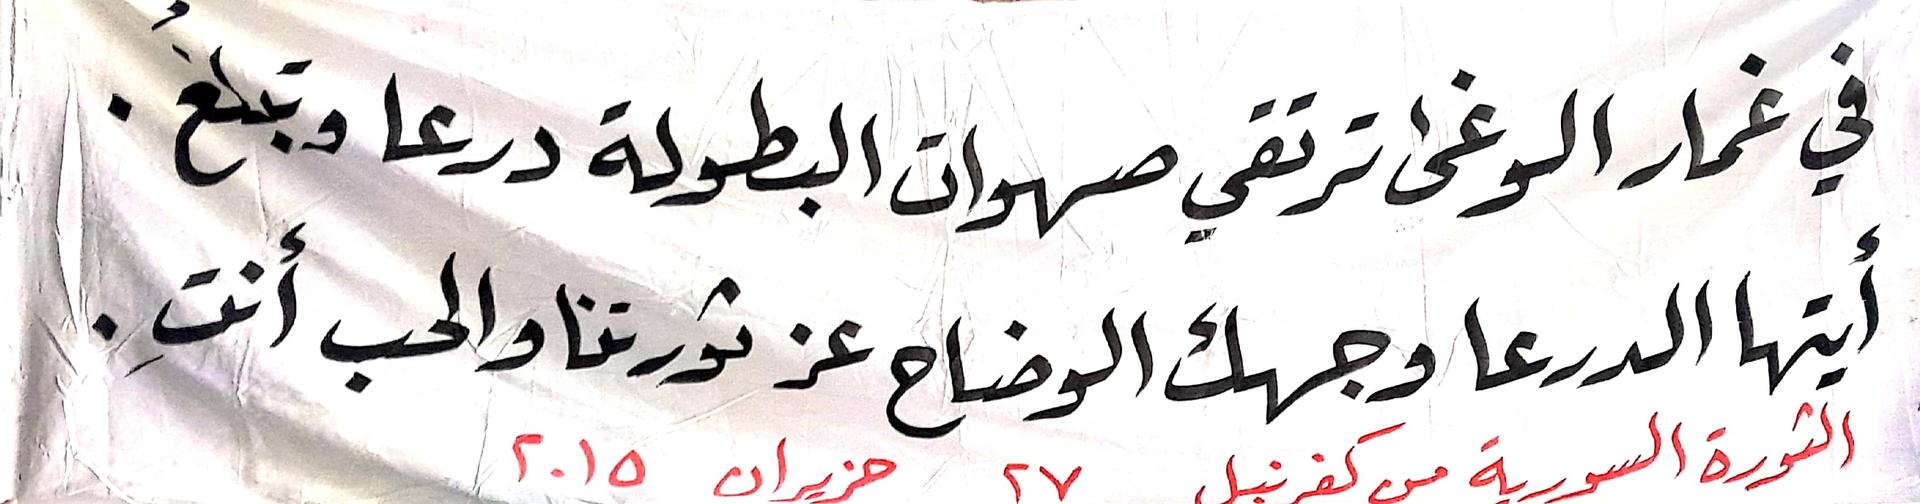 في غمار الوغى ترتقي صهوات البطولة درعا وتبلغُ .
أيتها الدرعا وجهك الوضاح عز ثورتنا والحب أنتِ .
الثورة السورية من كفرنبل ٢٧ حزيران ٢٠١٥